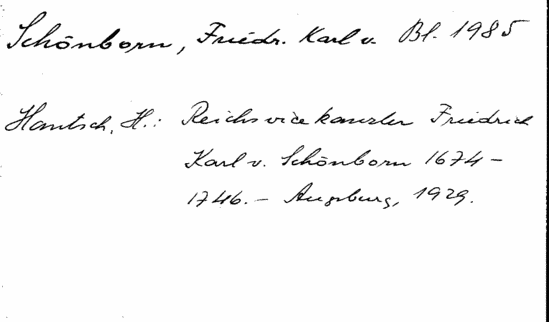 Schönborn, Friedr. Karl v. Bl. 1985
Hantsch, H.: Reichsvicekanzler Friedrich
Karl v. Schönborn 1674 –
1746. – Augsburg, 1929.